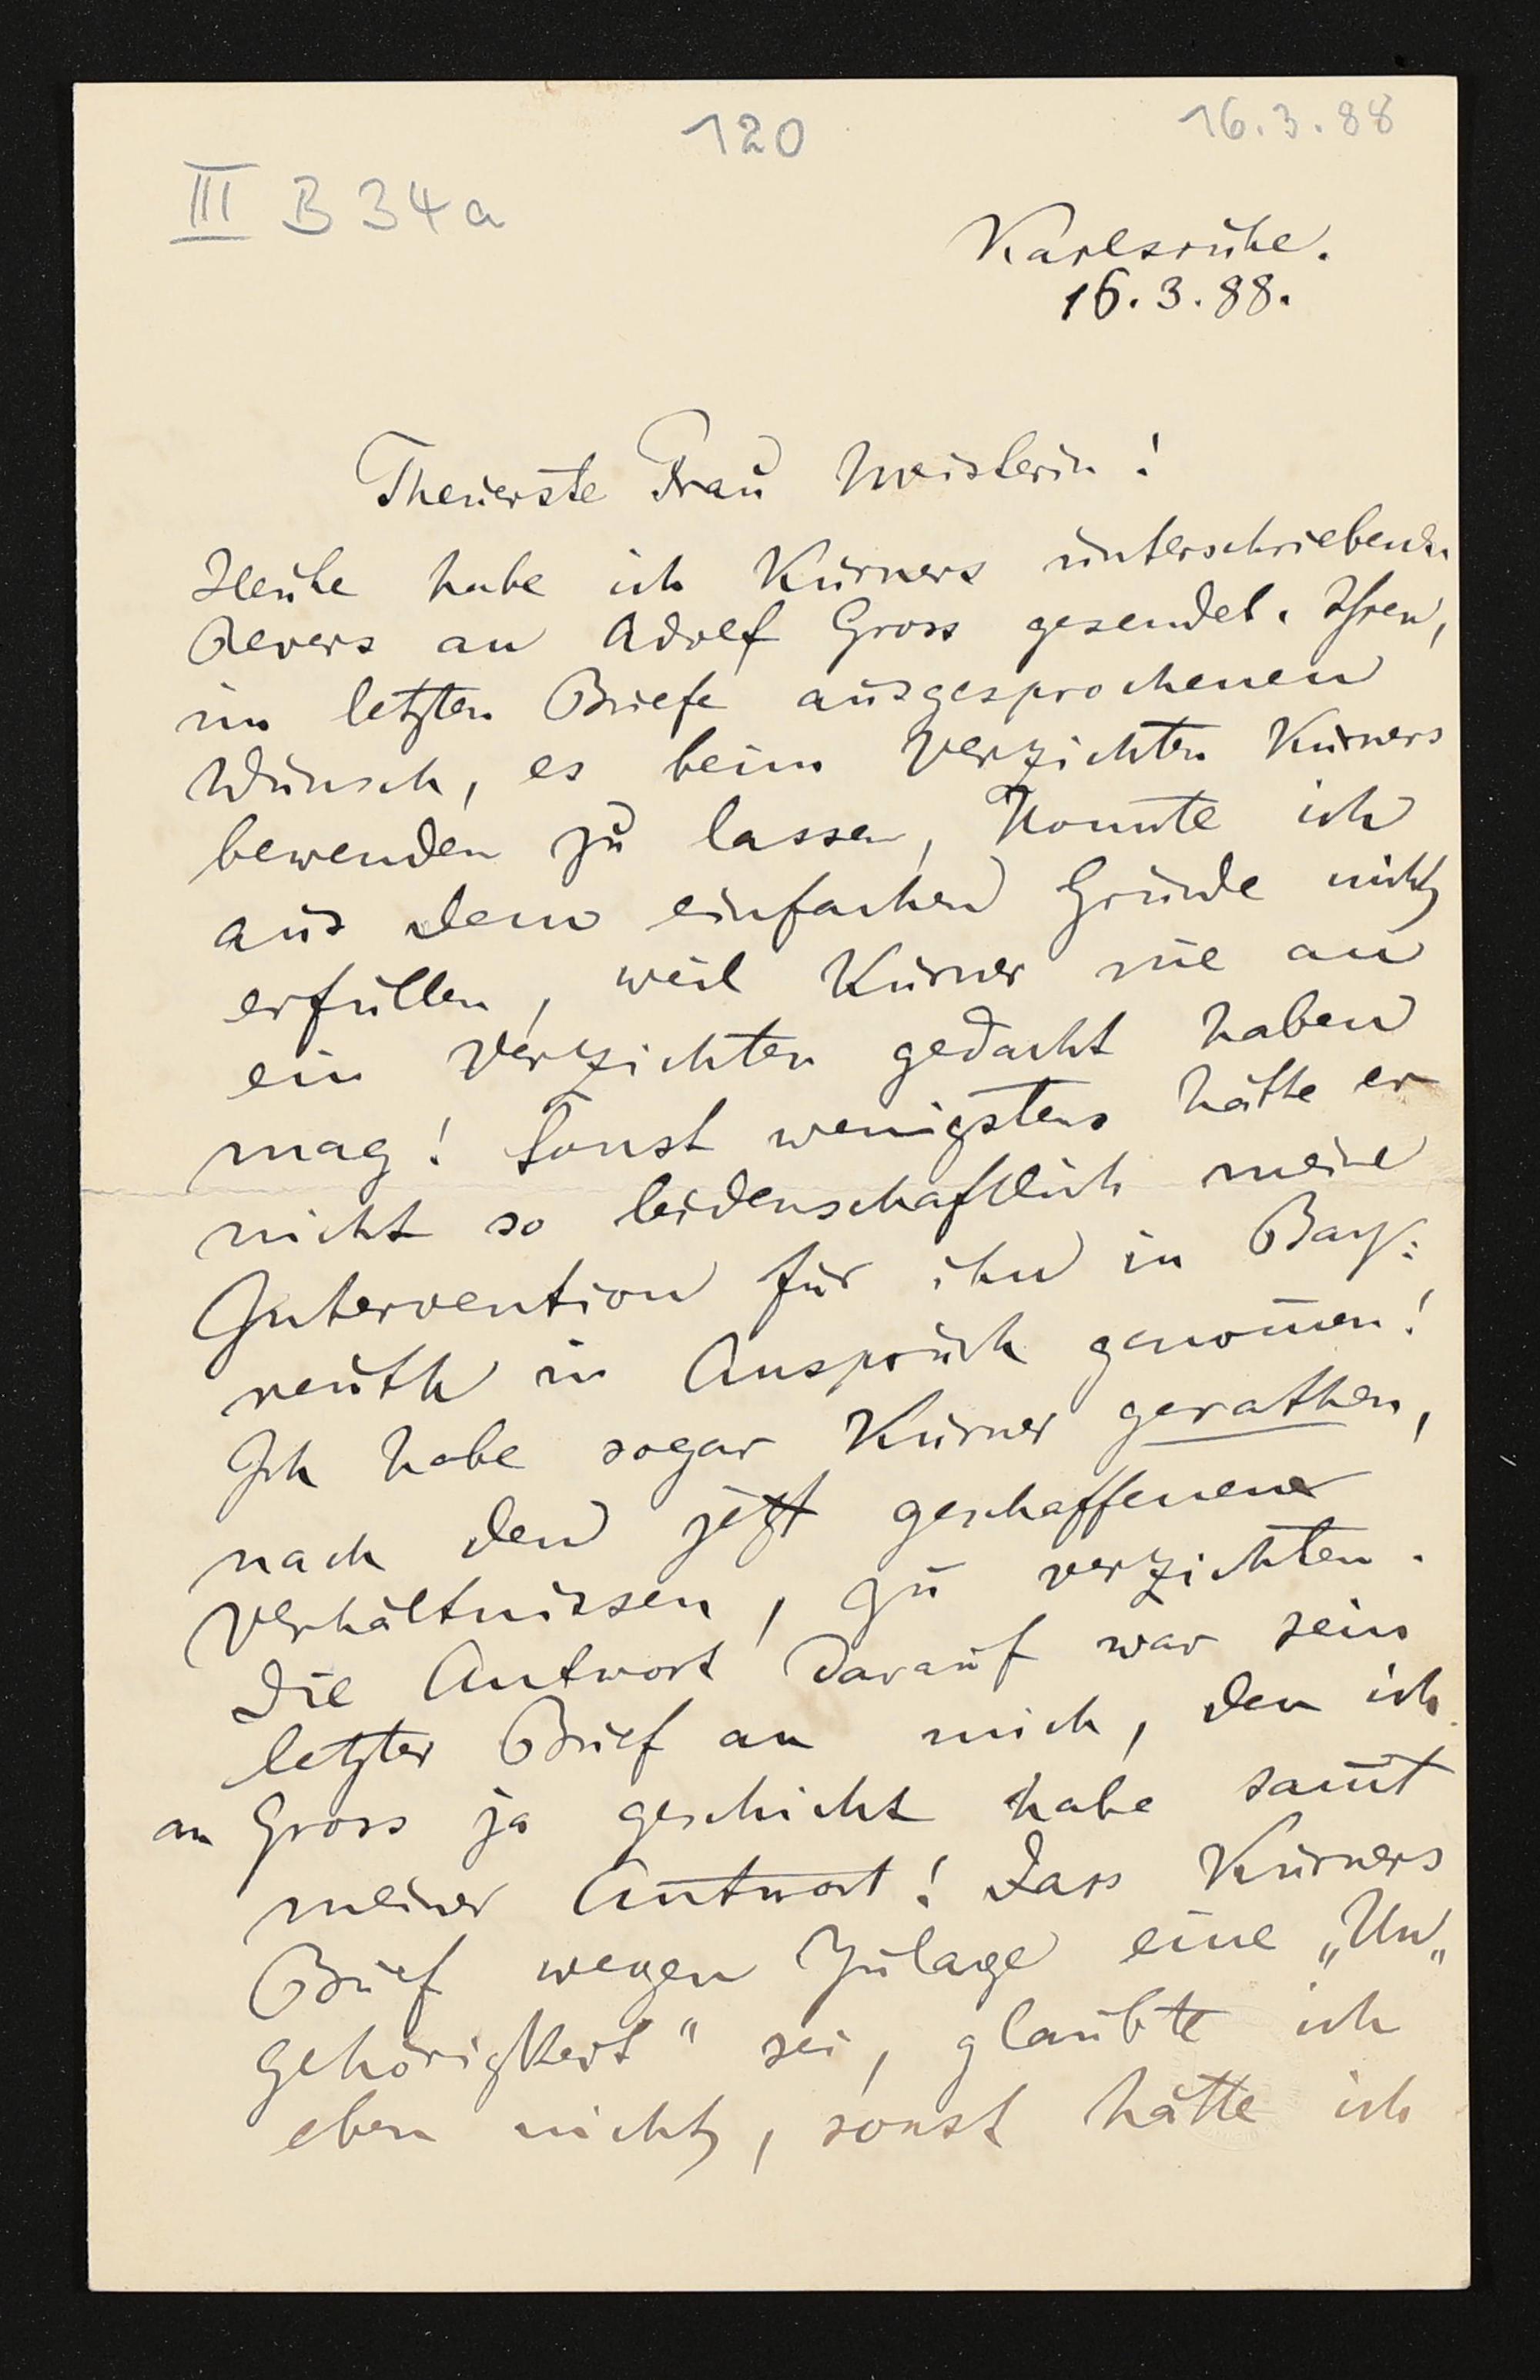 120
16.3.88
III B 34a
Karlsruhe.
16.3.88.
Theuerste Frau Meisterin!
Heute habe ich Kürners unterschriebenen
Revers an Adolf Gross gesendet. Ihren,
im letzten Briefe ausgesprochenen
Wunsch, es beim Verzichten Kürners
bewenden zu lassen, konnte ich
aus dem einfachen Grunde nicht
erfüllen, weil Kürner nie an
ein Verzichten gedacht haben
mag! Sonst wenigstens hätte er
nicht so leidenschaftlich meine
Intervention für ihn in Bay=
reuth in Anspruch genom̄en!
Ich habe sogar Kürner gerathen,
nach den jetzt geschaffenen
Verhältnissen, zu verzichten.
Die Antwort darauf war sein
letzter Brief an mich, den ich
an Gross ja geschickt habe sam̄t
meiner Antwort! Dass Kürners
Brief wegen Zulage eine „Un„
gehörigkeit" sei, glaubte ich
eben nicht, sonst hätte ich